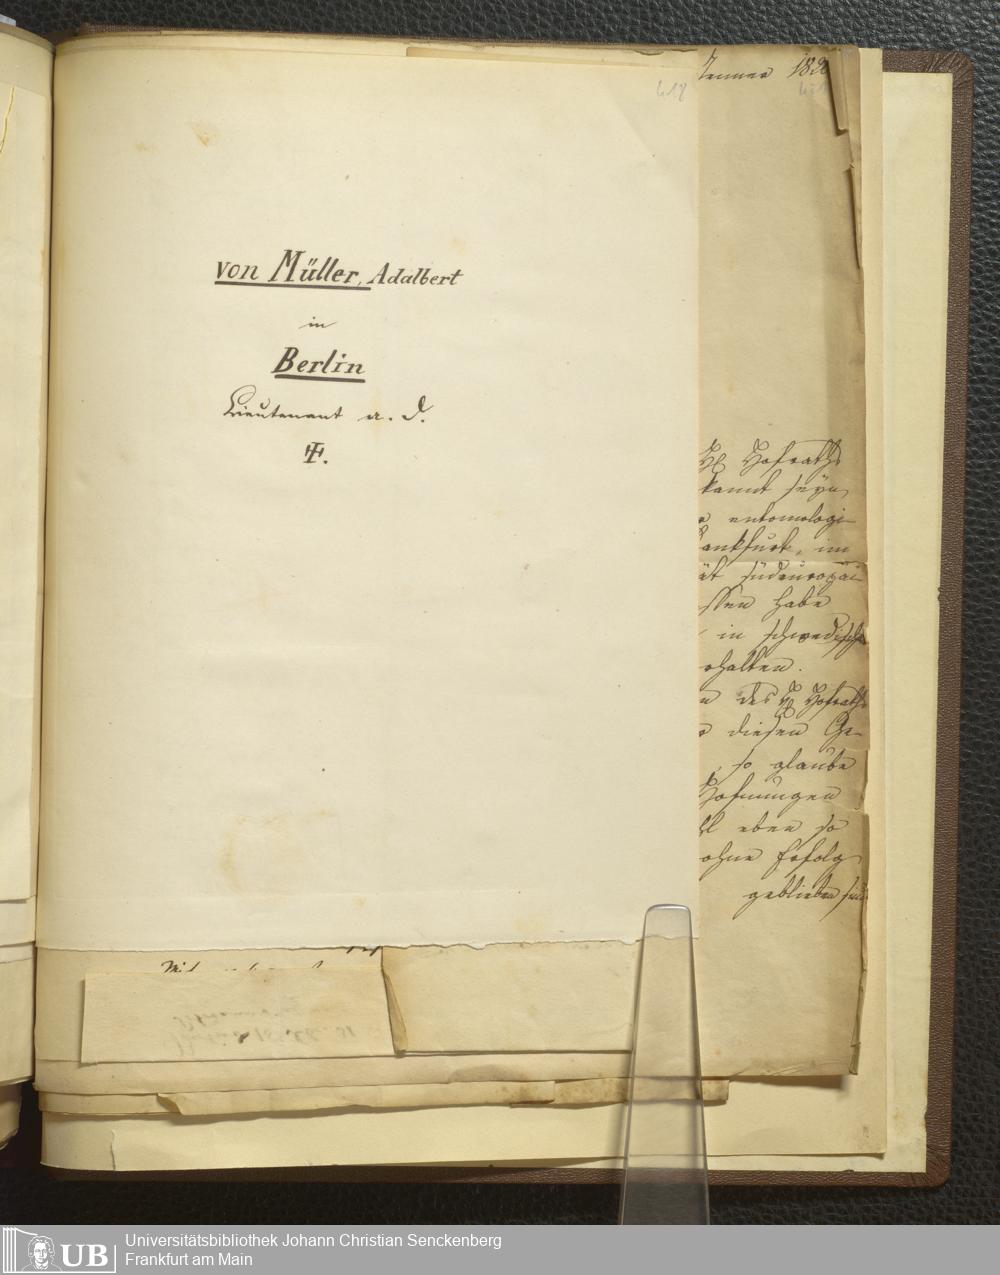 418
von Müller, Adalbert
in
Berlin
Lieutenant a. D.
Jenner 182
Hofraths
kannt seyn,
entomologi-
ankfurt, im
ät südeuropäi-
ssen habe
in schwedische
rhalten.
n des Hofraths
diesen Ge-
, so glaube
Hofnungen
hl eben so
ohne Erfolg
geblieben sind
UB
Universitätsbibliothek Johann Christian Senckenberg
Frankfurt am Main